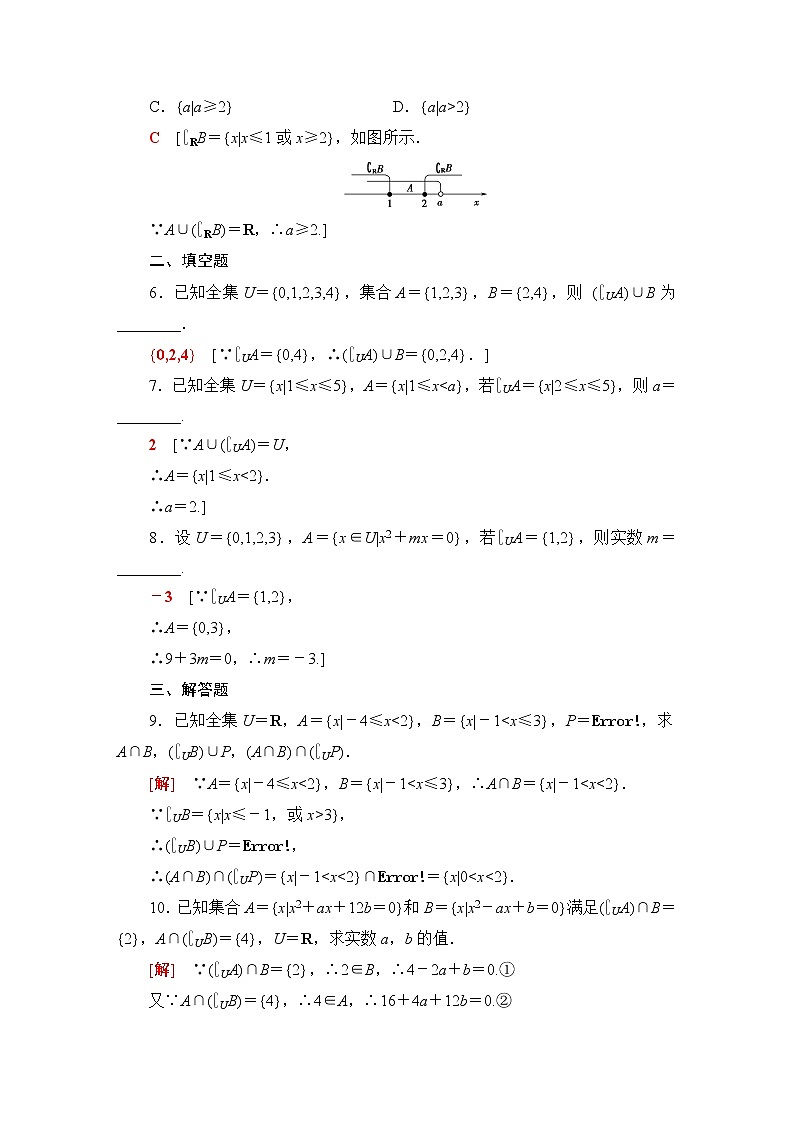 C．{a|a≥2} D．{a|a>2}
C [∁RB＝{x|x≤1或x≥2}，如图所示．
∁RB ∁RB
A
1 2 a x
∵A∪(∁RB)＝R，∴a≥2.]
二、填空题
6．已知全集U＝{0,1,2,3,4}，集合A＝{1,2,3}，B＝{2,4}，则 (∁UA)∪B为
________.
{0,2,4} [∵∁UA＝{0,4}，∴(∁UA)∪B＝{0,2,4}．]
7．已知全集U＝{x|1≤x≤5}，A＝{x|1≤x<a}，若∁UA＝{x|2≤x≤5}，则a＝
________.
2 [∵A∪(∁UA)＝U，
∴A＝{x|1≤x<2}.
∴a＝2.]
8．设U＝{0,1,2,3}，A＝{x∈U|x²＋mx＝0}，若∁UA＝{1,2}，则实数m＝
________.
－3 [∵∁UA＝{1,2}，
∴A＝{0,3}，
∴9＋3m＝0，∴m＝－3.]
三、解答题
9．已知全集U＝R，A＝{x|－4≤x<2}，B＝{x|－1<x≤3}，P＝Error!，求
A∩B，(∁UB)∪P，(A∩B)∩(∁UP)．
[解] ∵A＝{x|－4≤x<2}，B＝{x|－1<x≤3}，∴A∩B＝{x|－1<x<2}．
∵∁UB＝{x|x≤－1，或x>3}，
∴(∁UB)∪P＝Error!，
∴(A∩B)∩(∁UP)＝{x|－1<x<2}∩Error!＝{x|0<x<2}．
10．已知集合A＝{x|x²＋ax＋12b＝0}和B＝{x|x²－ax＋b＝0}满足(∁UA)∩B＝
{2}，A∩(∁UB)＝{4}，U＝R，求实数a，b的值．
[解] ∵(∁UA)∩B＝{2}，∴2∈B，∴4－2a＋b＝0.①
又∵A∩(∁UB)＝{4}，∴4∈A，∴16＋4a＋12b＝0.②